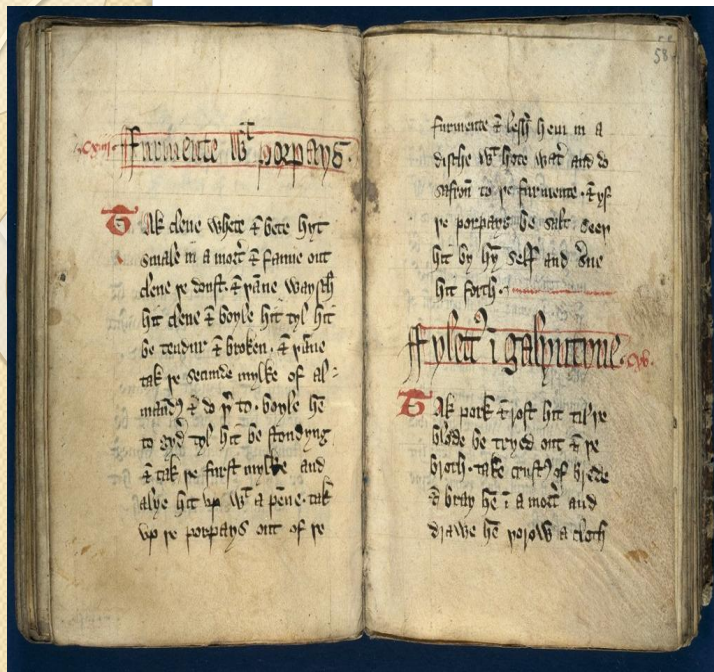 .cxiiij. Ffurmente wt porpays.
Tak clene whete & bete hyt
smale in a morť & fanne out
clene þe doust. & þāne waysch
hit clene & boyle hit tyl hit
be tendur & broken. & þāne
tak þe secunde mylke of al-
mandꝰ & do þ̉ to. boyle hē
to gyd̉ tyl hit be stondyng
& tak þe furst mylke and
alye hit vp wt a pēne. tak
vp þe porpays out of þe
58
furmente & lesch hem in a
dische wt hote wať and do
safron to þe furmente. & yf
þe porpays be salt seeþ
hit by hȳ self and s̉ue
hit forth.
Ffylettꝰ ī galyntyne. .cxv.
Tak pork & rost hit til þe
blode be tryed out & þe
broth. take crustꝰ of brede
& bray hē ī a morť and
drawe hē þorow a cloth